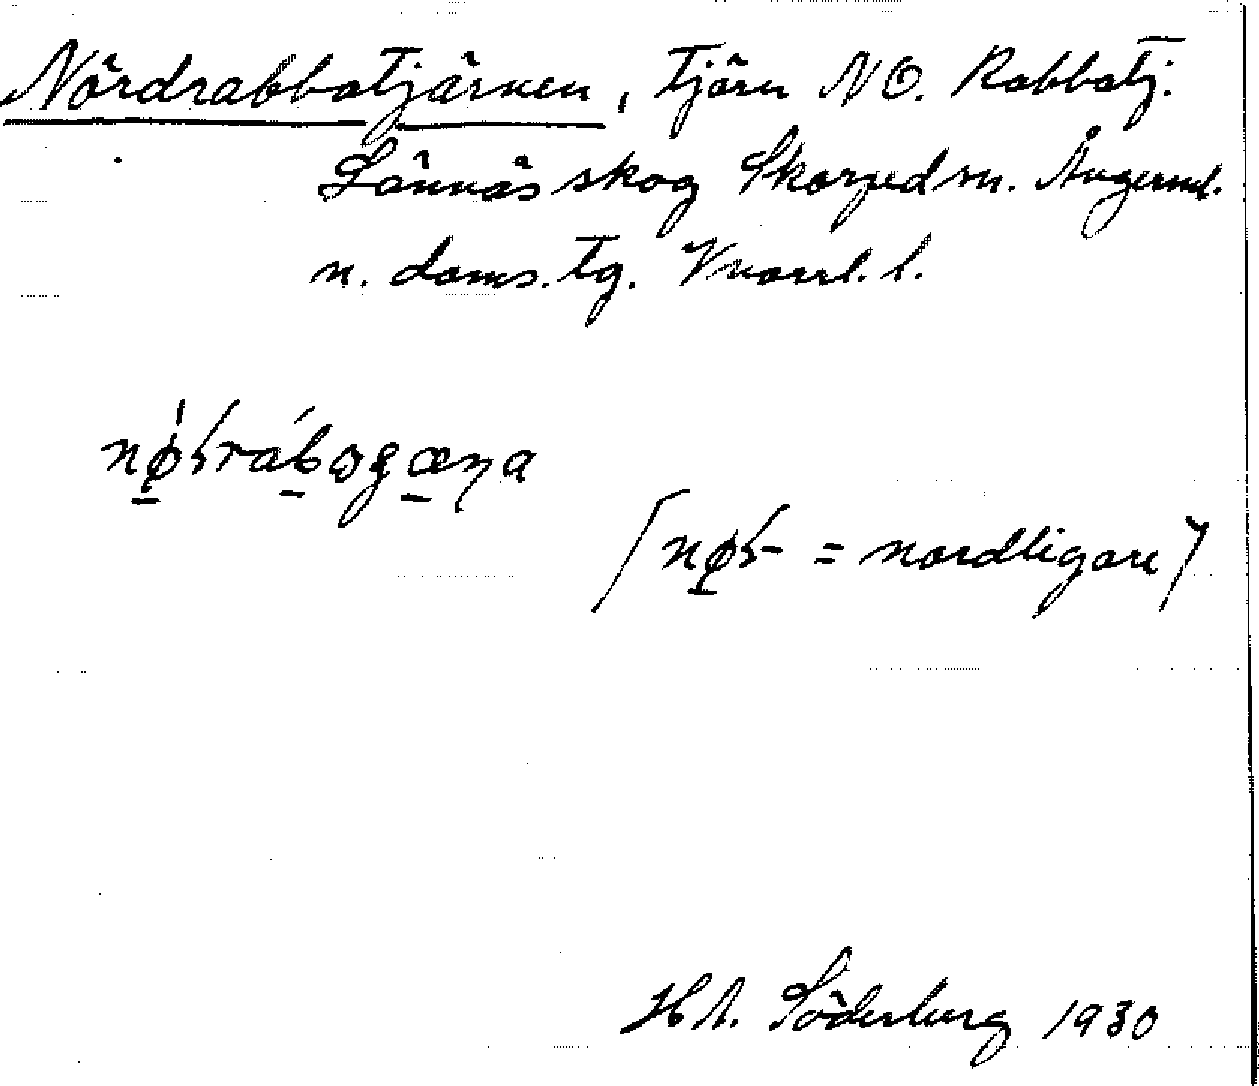 Nördrabbatjärnen, Tjärn NO. Rabbatj.
Lännäs skog Skorped sn. Ångerml.
n. doms. tg. Vnorrl. l.
(= nordligare)
H A. Söderberg 1930